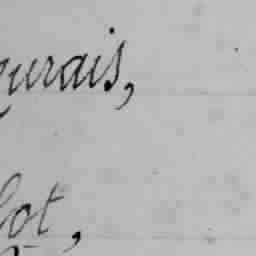 urais,
lot,